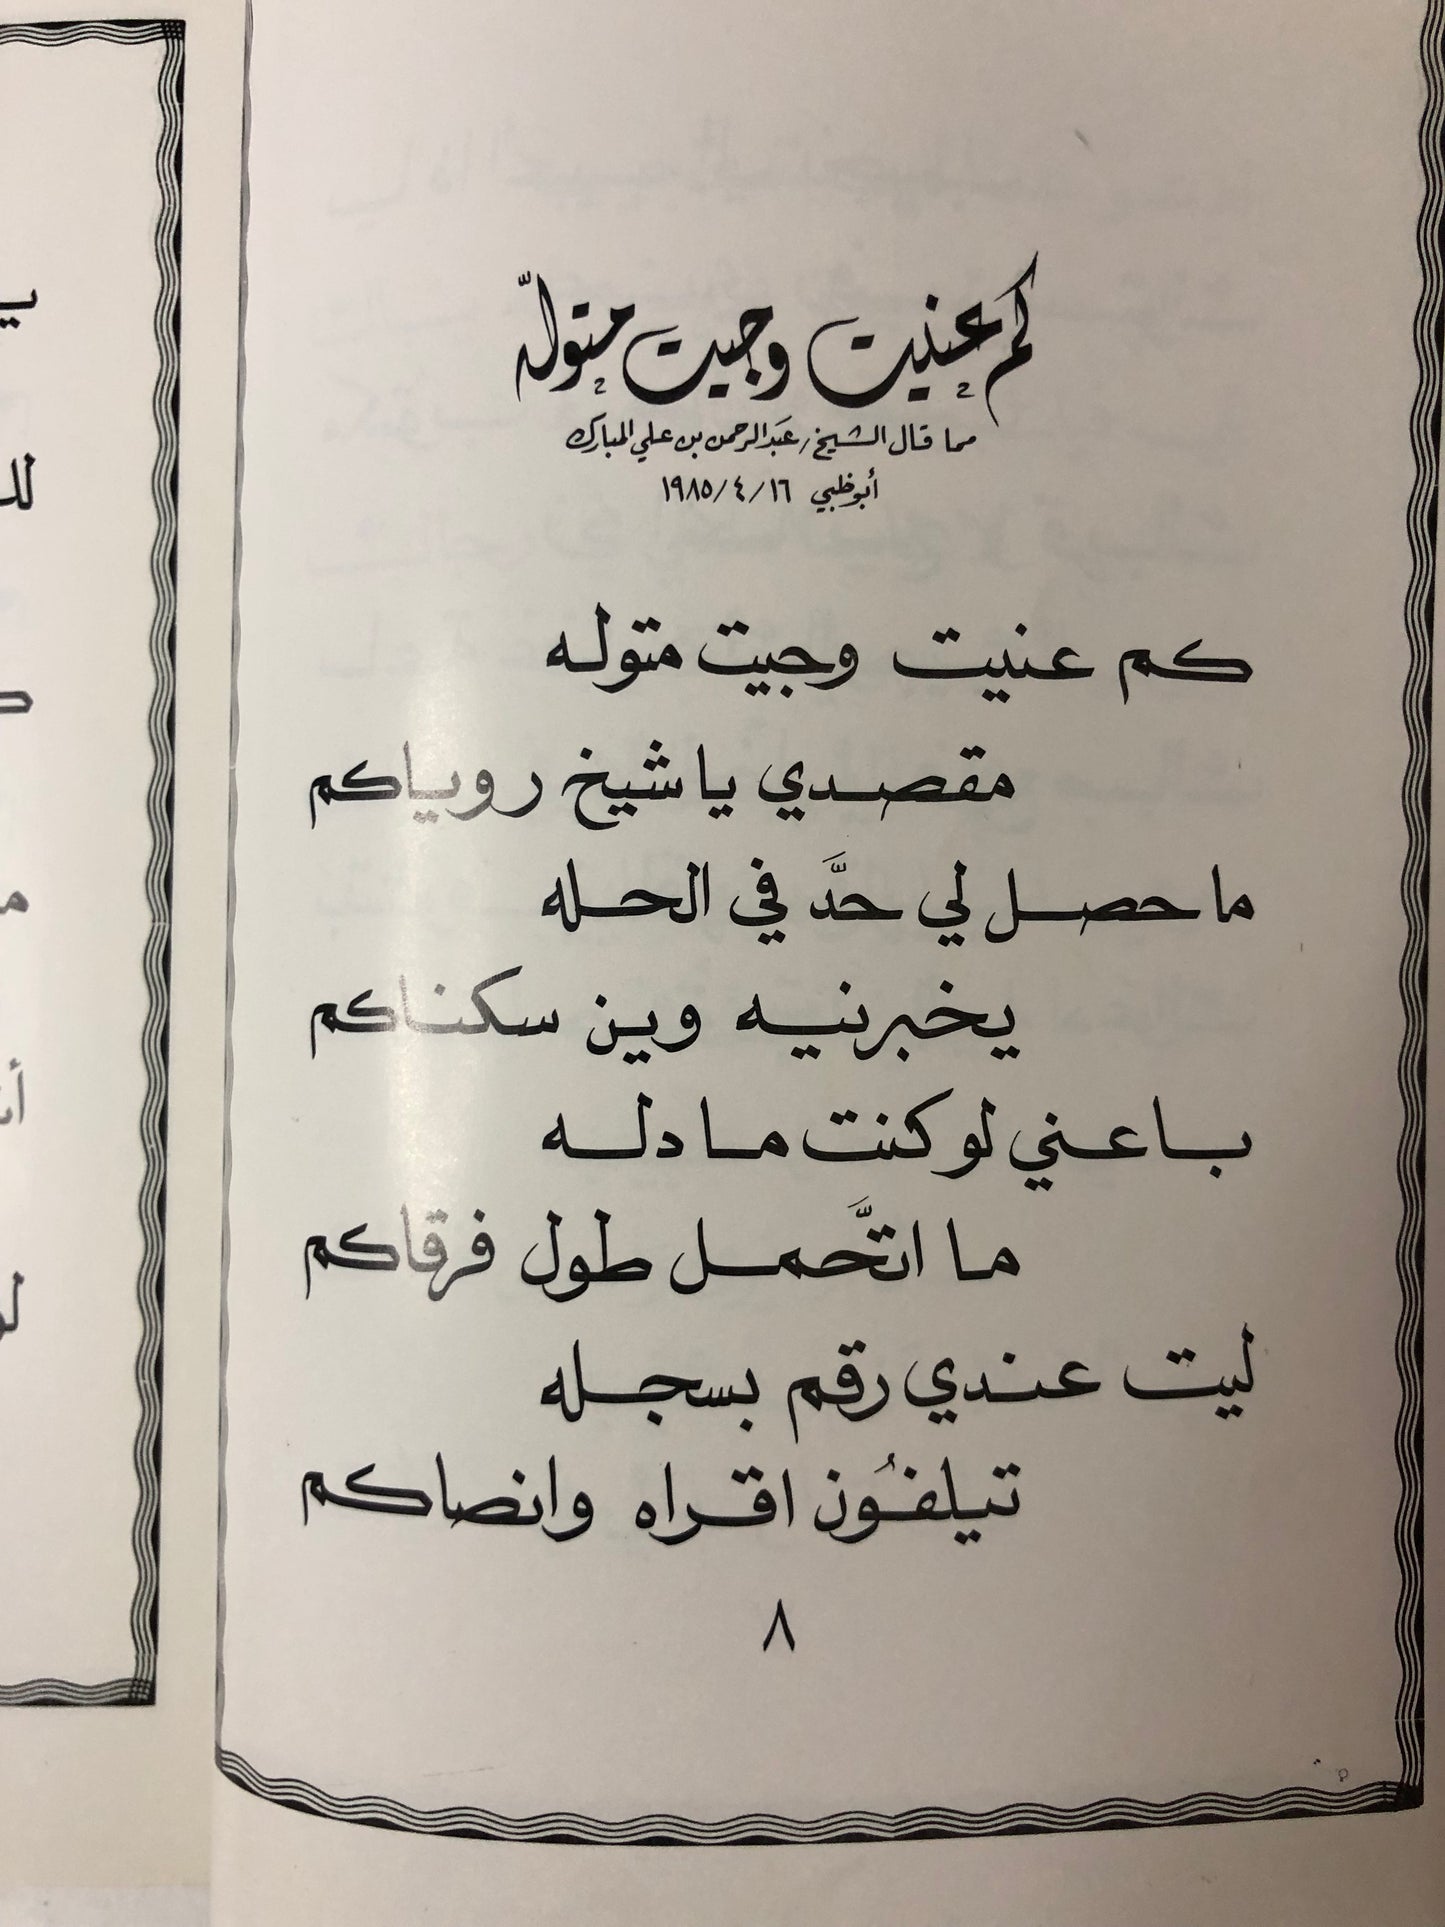 كم عنيت وجيت متولّه
مما قال الشيخ/ عبدالرحمن بن علي المبارك
أبوظبي ١٩٨٥/٤/١٦
كم عنيت وجيت متوله
مقصدي يا شيخ روياكم
ما حصل لي حدَّ في الحله
يخبرنيه وين سكناكم
باعني لو كنت ما دله
ما اتَّحمل طول فرقاكم
ليت عندي رقم بسجله
تيلفُون اقراه وانصاكم
٨